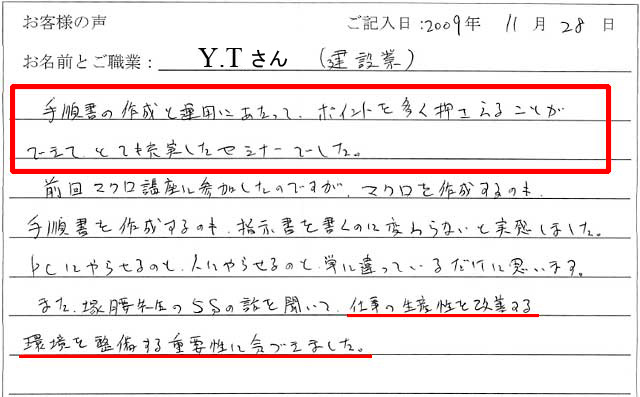 お客様の声 ご記入日:2009年 11月 28日
お名前とご職業: Y.Tさん (建設業)
手順書の作成と運用にあたって、ポイントを多く押さえることが
できて、とても充実したセミナーでした。
前回マクロ講座に参加したのですが、マクロを作成するのも、
手順書を作成するのも、指示書を書くのに変わらないと実感しました。
PCにやらせるのと、人にやらせるのと、単に違っているだけに思います。
また、塚腰先生の5Sの話を聞いて、仕事の生産性を改善する
環境を整備する重要性に気づきました。